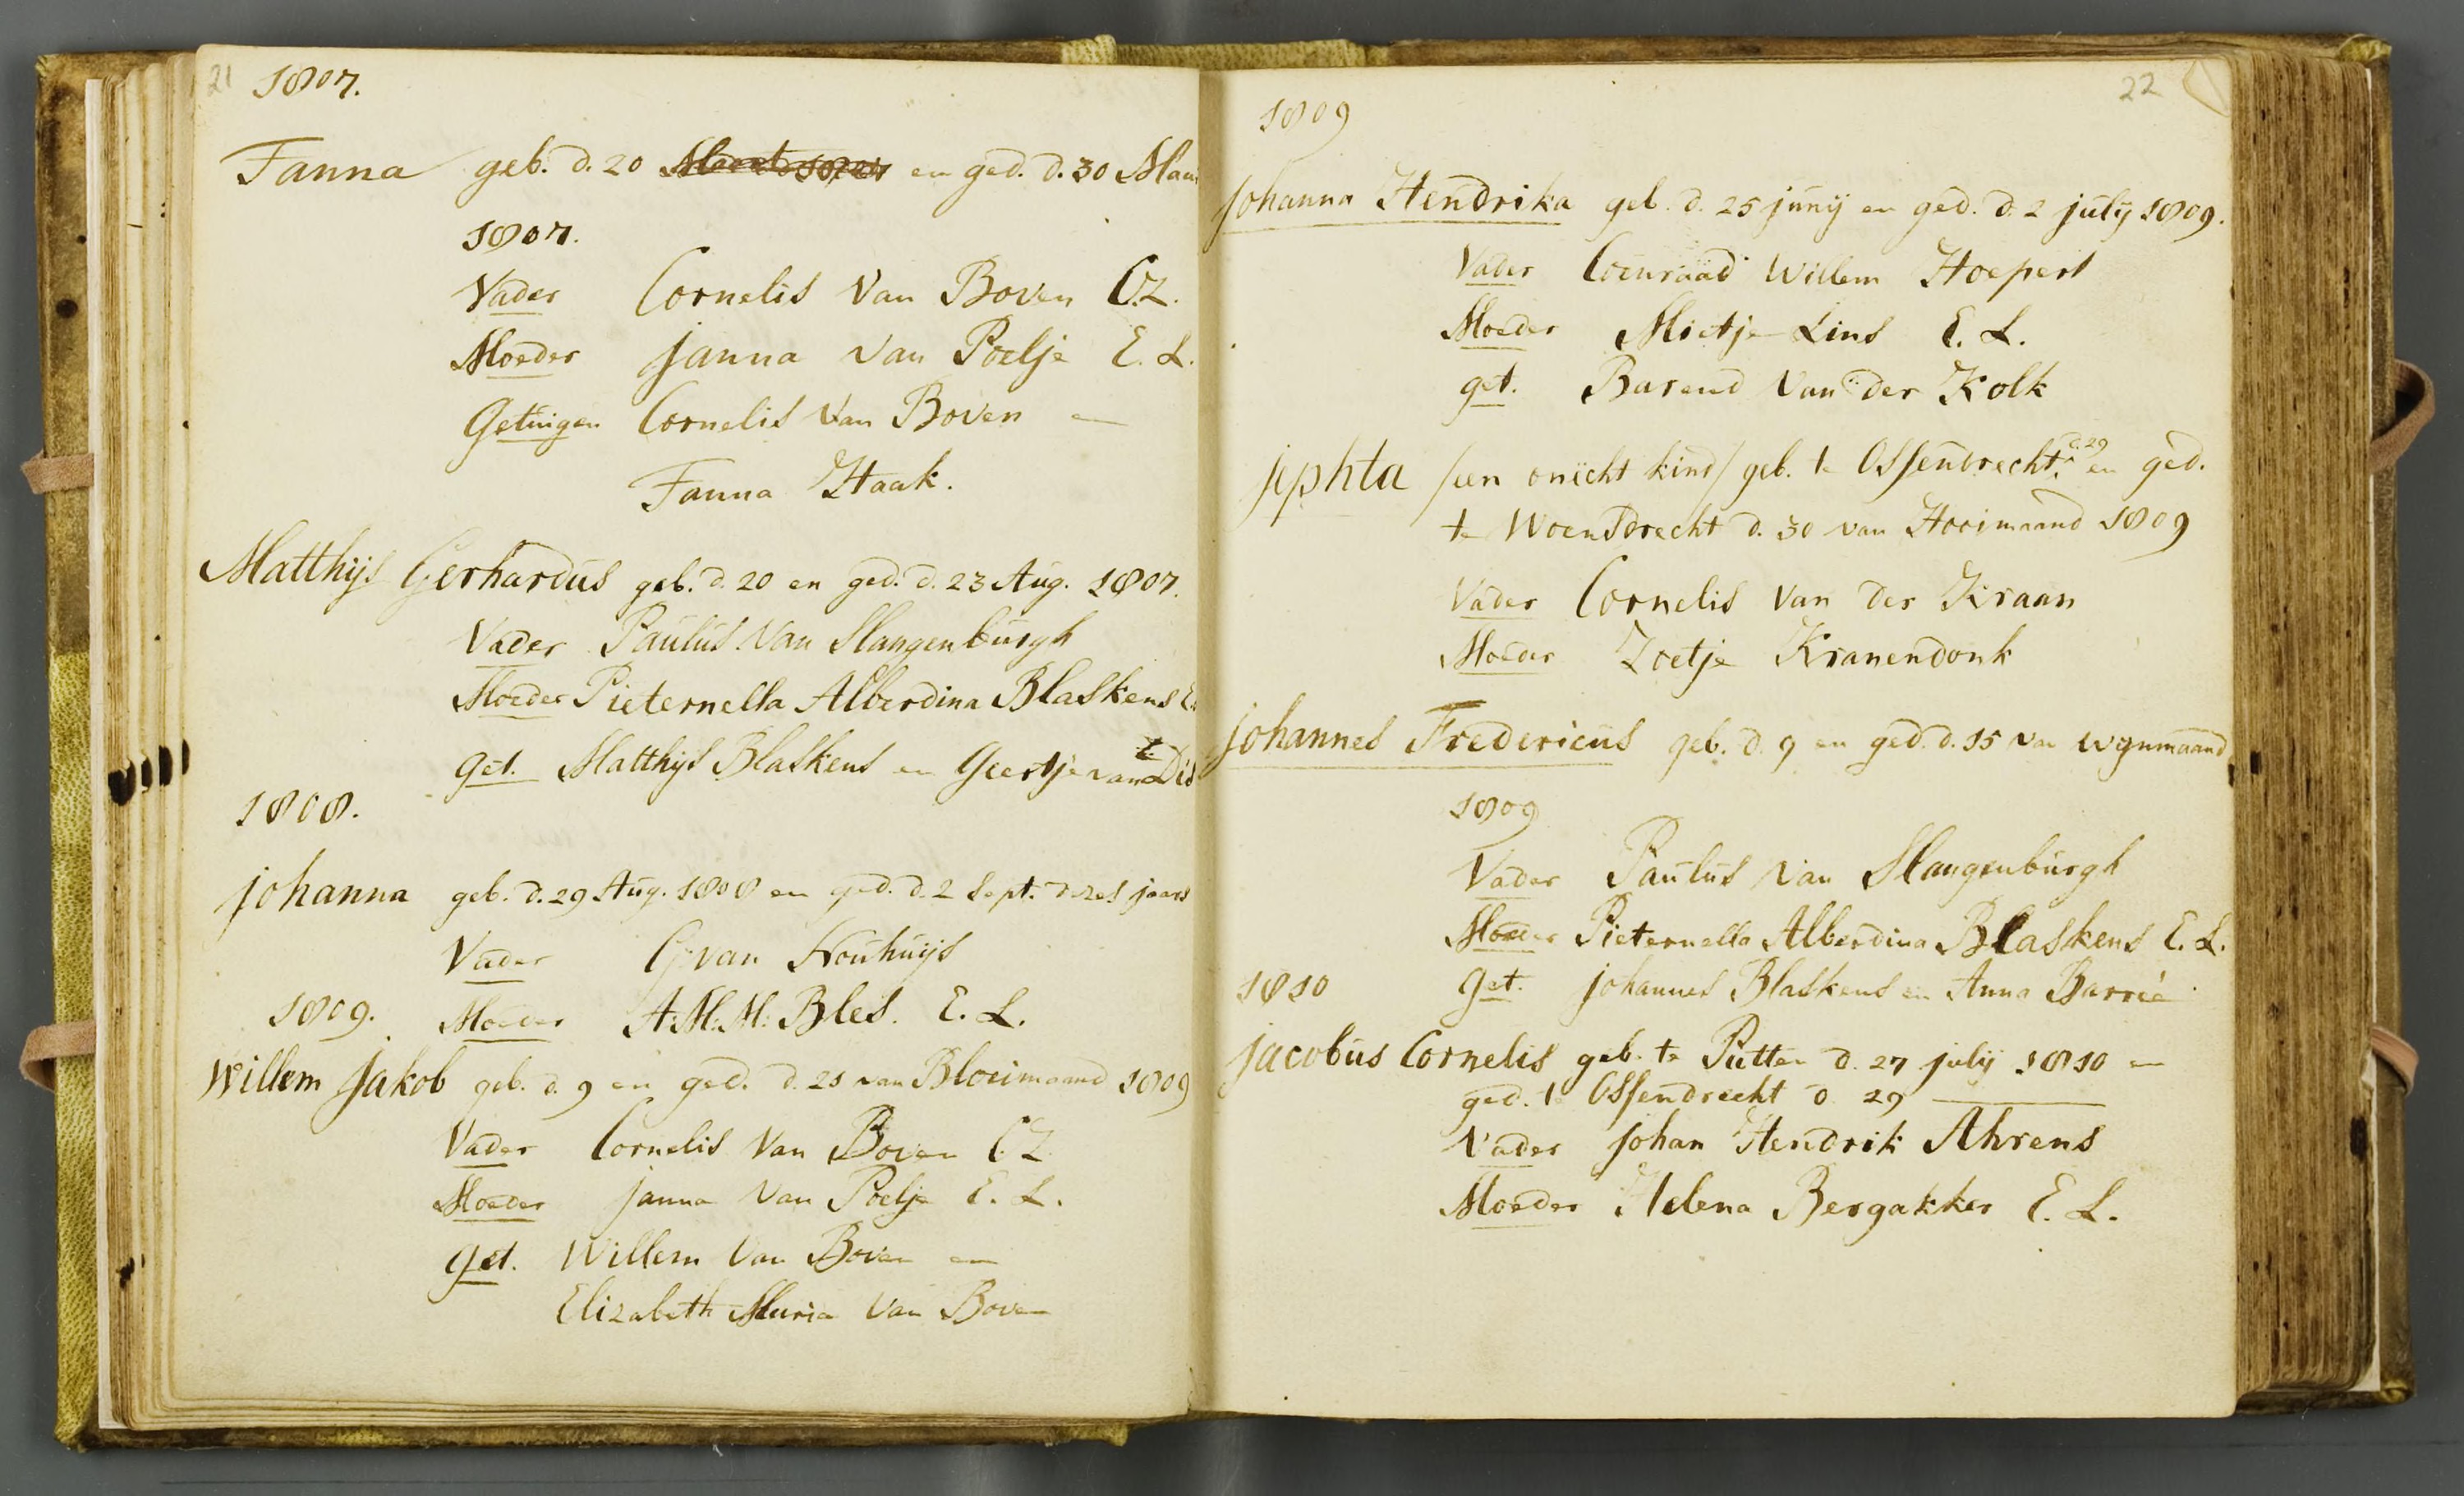 21 1807.
Fanna geb. d. 20 en ged. d. 30 Maa
1807.
Vader Cornelis van Boven C.Z.
Moeder Janna van Poelje E. L.
Getuigen Cornelis van Boven en
Fanna Haak.
Matthijs Gerhardus geb. d. 20 en ged. d. 23 Aug. 1807.
Vader Paulus van Slangenburgh
Moeder Pieternella Alberdina Blaskens E.
get. Matthijs Blaskens en Geertje van
1808.
Johanna geb. d. 29 Aug. 1808 en ged. d. 2 Sept. dezes jaars
Vader G. van Nouhuijs
1809. Moeder A: M: M: Bles. E. L.
Willem Jakob geb. d. 9 en ged. d. 21 van Bloeimaand 1809
Vader Cornelis van Boven C.Z
Moeder Janna van Poelje E. L.
get. Willem van Boven en
Elizabeth Maria van Boven
22
1809
Johanna Hendrika geb. d. 25 junij en ged. d. 2 july 1809.
Vader Coenraad Willem Hoepert
Moeder Mietje Lins E. L.
get. Barend van der Kolk
Jephta /een onicht kind/ geb. te Ossendrecht d. 29 en ged.
te Woensdrecht d. 30 van Hooimaand 1809
Vader Cornelis van der Kraan
Moeder Zoetje Kranendonk
Johannes Fredericus geb. d. 9 en ged. d. 15 van Wynmaand
1809
Vader Paulus van Slangenburgh
Moeder Pieternella Alberdina Blaskens E. L.
1810 get. Johannes Blaskens en Anna Barrié
Jacobus Cornelis geb. te Putte d. 27 july 1810 en
ged. te Ossendrecht d. 29
Vader Johan Hendrik Ahrens
Moeder Helena Bergakker E. L.